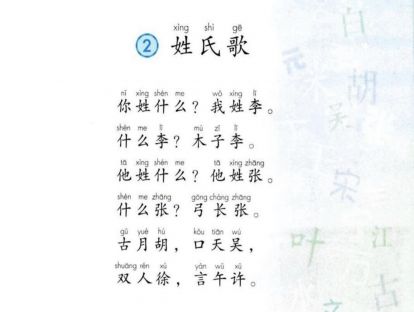 xìng shì gē
② 姓氏歌
nǐ xìng shén me wǒ xìng lǐ
你姓什么？我姓李。
shén me lǐ mù zǐ lǐ
什么李？木子李。
tā xìng shén me tā xìng zhāng
他姓什么？他姓张。
shén me zhāng gōng cháng zhāng
什么张？弓长张。
gǔ yuè hú kǒu tiān wú
古月胡，口天吴，
shuāng rén xú yán wǔ xǔ
双人徐，言午许。
白
元
木
胡
吴
宋
叶
江
古